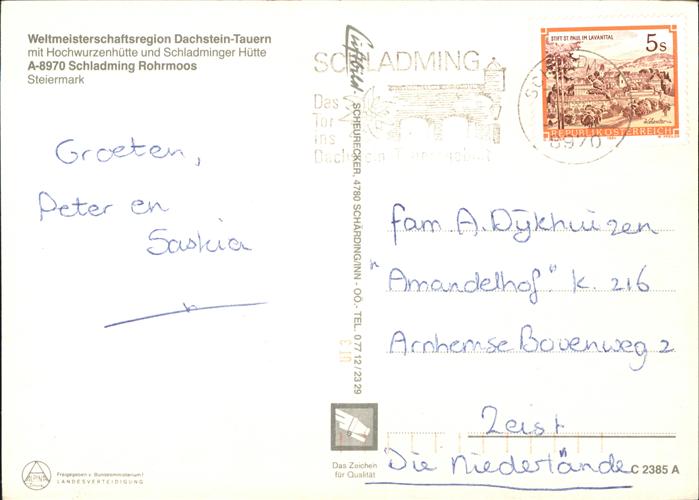 Weltmeisterschaftsregion Dachstein-Tauern
mit Hochwurzenhütte und Schladminger Hütte
A-8970 Schladming Rohrmoos
Steiermark
Groeten,
Peter en
Saskia
Freigegeben v. Bundesministerium f.
LANDESVERTEIDIGUNG
ALPINA
Luftbild - SCHEURECKER, 4780 SCHÄRDING/INN - OÖ. - TEL. 0 77 12 / 23 29
Das Zeichen
für Qualität
SCHLADMING
Das
Tor
ins
Dachstein-Tauerngebiet
8970
STIFT ST. PAUL IM LAVANTTAL
5 S
REPUBLIK ÖSTERREICH
fam A. Dijkhuizen
"Amandelhof" k. 216
Arnhemse Bovenweg 2
Zeist
Die Niederlände
C 2385 A